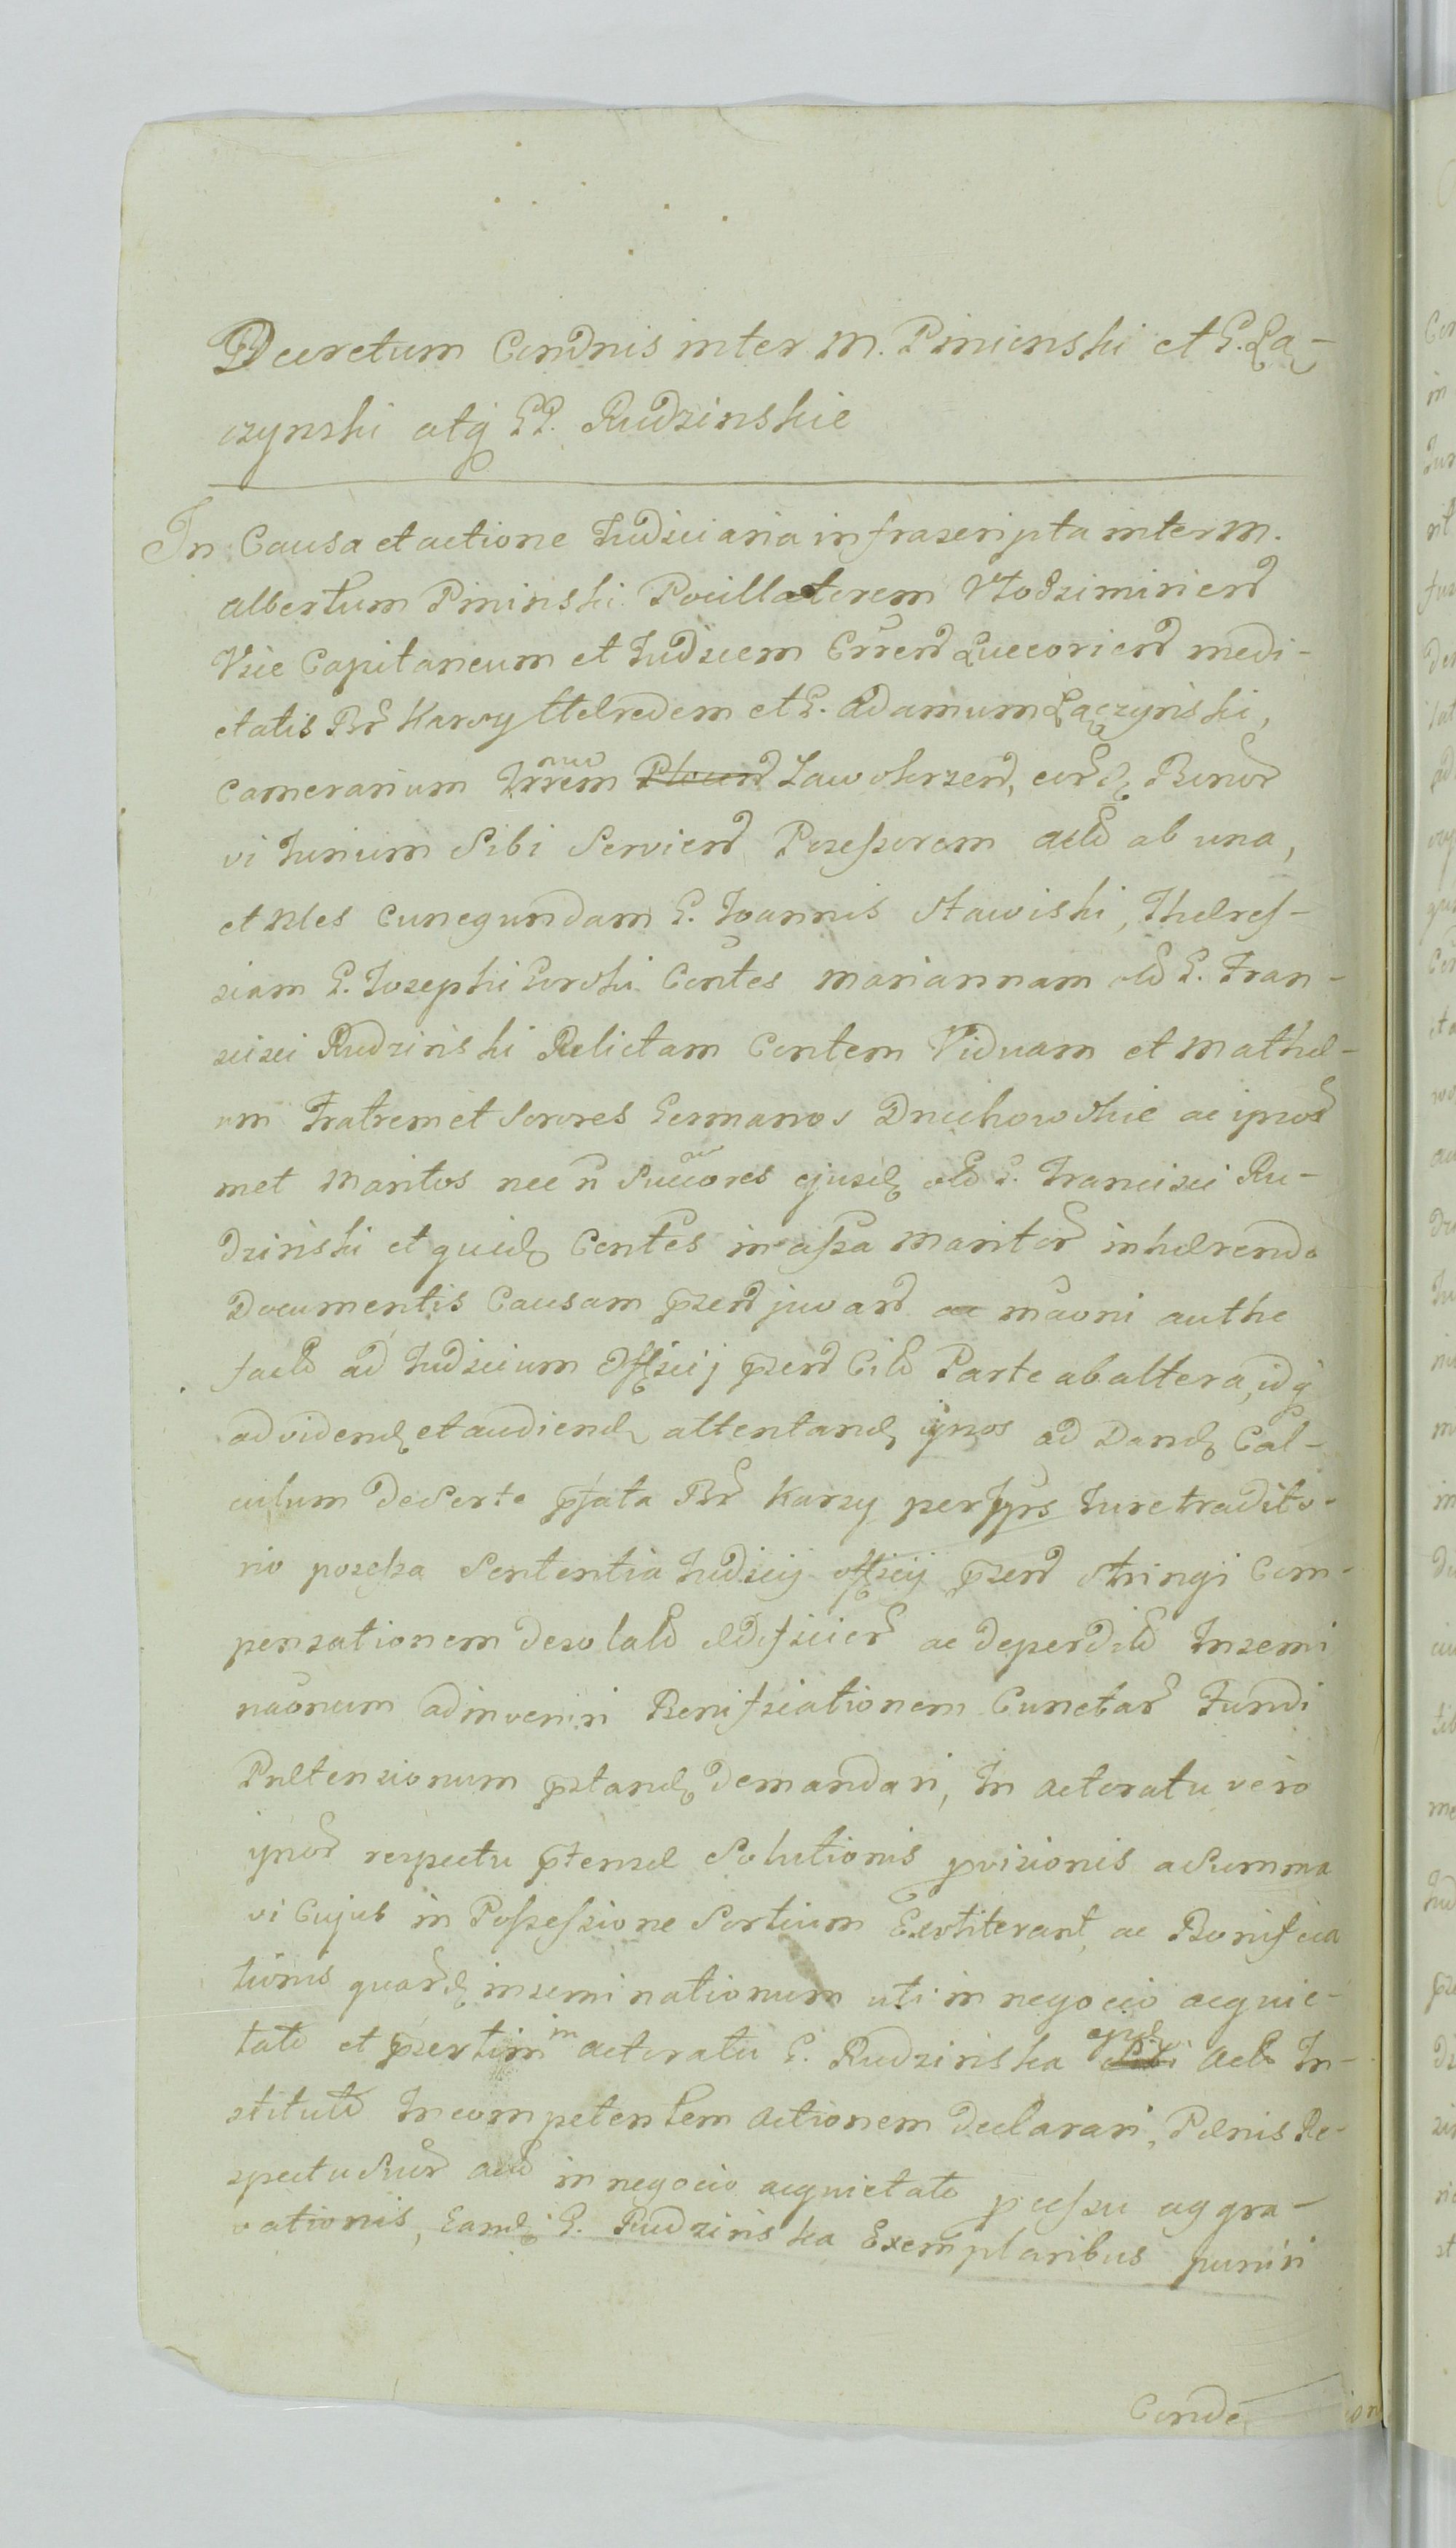 Decretum Condnis inter M. Pininski et G. Łą-
czynski atq GG. Rudzinskie
In Causa et actione Judiciaria infrascripta inter M.
Albertum Pininski Pocillatorem Włodzimirien
Vice Capitaneum et Judicem Crren Luceorien medi-
etatis Br Karczy Hæredem et G. Adamum Łączyński,
Camerarium Trrem Zawskrzen, eord Bonor
vi Jurium Sibi Servien Possessorem act ab una,
et Nles Cunegundam G. Joannis Stawiski, Theres-
siam G. Josephi Gorski Contes Mariannam olt G. Fran-
cisci Rudzinski Relictam Contem Viduam et Mathæ-
um Fratrem et Sorores Germanos Dmichowskie ac ipsor
met Maritos nec n Succores ejusd olt G. Francisci Ru-
dzinski et quid Contes in assa Maritor inhærendo
Documentis Causam pzen juvan ac maoni authe
fact ad Judicium Officij pzen Cit Parte ab altera, idq
ad vidend et audiend attentand ipsos ad Dand Cal-
culum de Sorte pfata Br Karczy per Ipsos Jure tradito-
rio possessa Sententia Judicij officij pzen stringi Com-
pensationem desolat ædificior ac deperdit Insemi
naonum adinveniri Bonificationem Cunctar Fundi
Prætensionum pstand demandari, In actoratu vero
ipsor respectu ptensæ Solutionis pvisionis a Summa
vi Cujus in Possessione Sortium Exstiterant, ac Bonifica
tionis quard inseminationum uti in negocio acquie-
tato et pzertim in actoratu G. Rudzinska Act In-
stituto Incompetentem Actionem declarari, Pænis Re-
spectu Suor act in negocio acquietato pcessu aggra-
vationis, Eand G. Rudzinska Exemplaribus puniri
Conde